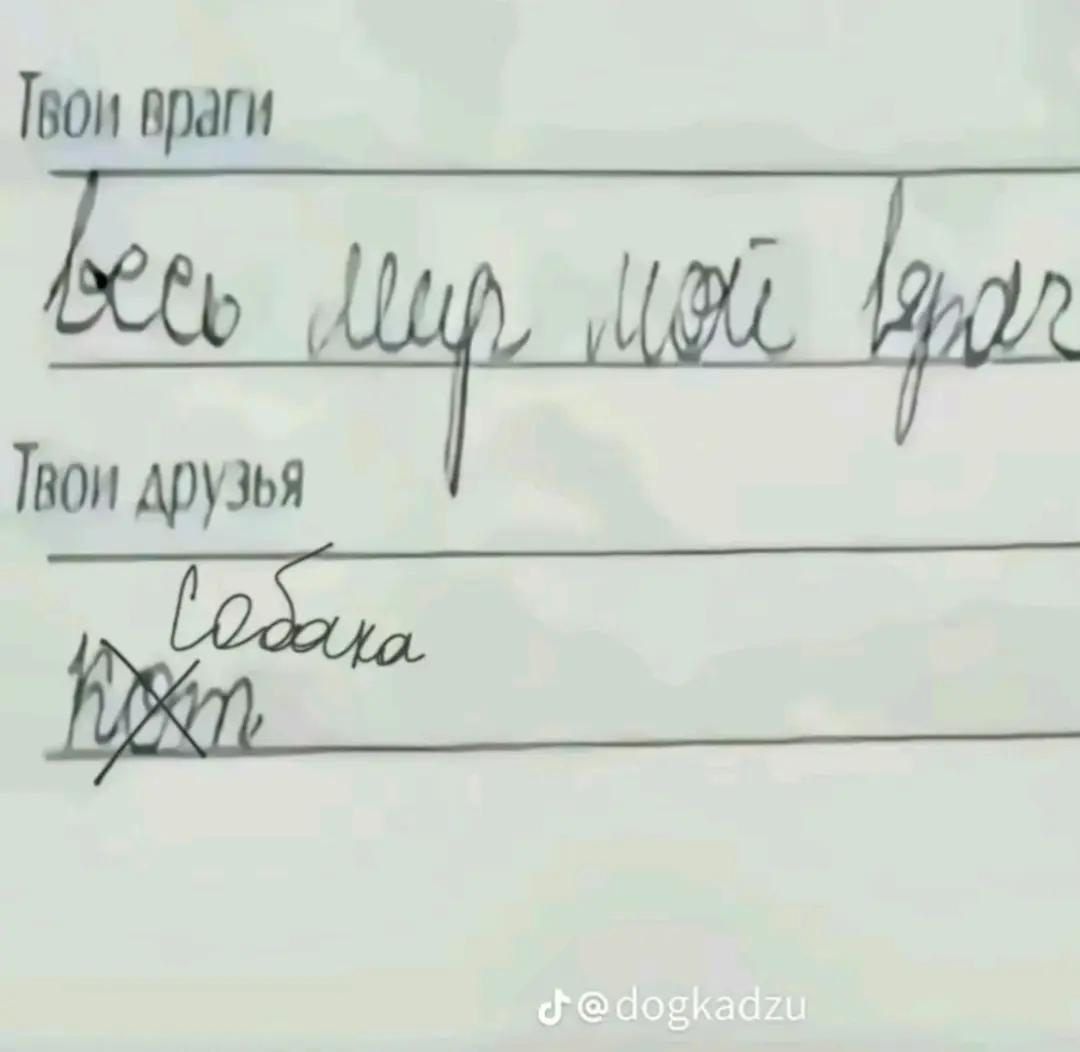 Твои враги
весь мир мой враг
Твои друзья
Собака
кот
@dogkadzu